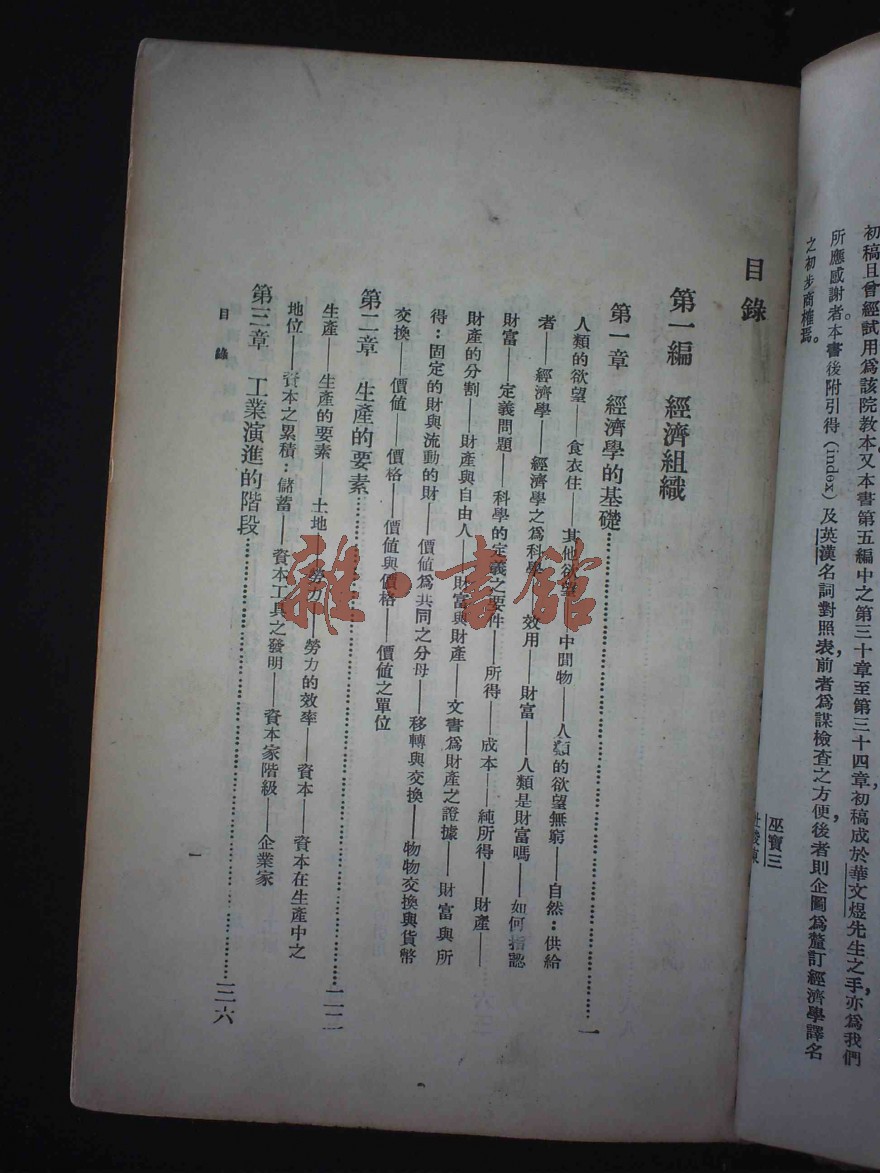 初稿且曾經試用爲該院教本又本書第五編中之第三十章至第三十四章初稿成於華文煜先生之手亦爲我們
所應感謝者。本書後附引得(index)及英漢名詞對照表,前者爲謀檢查之方便,後者則企圖爲釐訂經濟學譯名
之初步商榷焉。
巫寶三
目錄
第一編 經濟組織
第一章 經濟學的基礎……一
人類的欲望——食衣住——其他欲望——中間物——人類的欲望無窮——自然:供給
者——經濟學——經濟學之爲科學——效用——財富——人類是財富嗎——如何指認
財富——定義問題——科學的定義之要件——所得——成本——純所得——財產——
財產的分割——財產與自由人——財富與財產——文書爲財產之證據——財富與所
得:固定的財與流動的財——價值爲共同之分母——移轉與交換——物物交換與貨幣
交換——價值——價格——價值與價格——價值之單位
第二章 生產的要素……二二
生產——生產的要素——土地——勞力——勞力的效率——資本——資本在生產中之
地位——資本之累積:儲蓄——資本工具之發明——資本家階級——企業家
第三章 工業演進的階段……三六
目錄
一
雜·書館